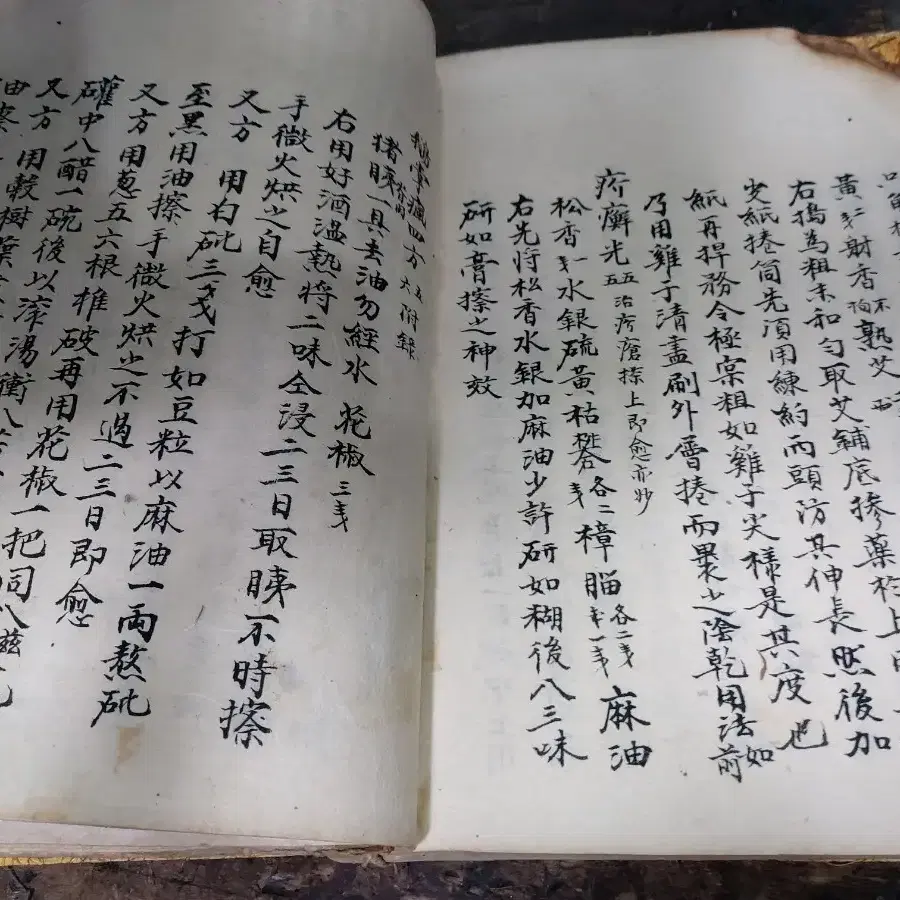 黃 射香 熟艾
右搗為粗末和勻取艾鋪底摻藥於上
紙捲筒先須用練約兩頭防其伸長然後加
紙再捍務令極宲粗如雞子尖樣是其度也
乃用雞子清盡刷外層捲而裹之陰乾用法如前
疥癬光 五五 治疥瘡搽上即愈亦妙
松香 水銀 硫黃 枯礬 各二 樟腦 各二戋 麻油
右先將松香水銀加麻油少許研如糊後入三味
研如膏搽之神效
掌瘋四方 五六 附錄
猪胰一具去油勿經水 花椒三戋
右用好酒溫熱將二味仝浸二三日取胰不時擦
手微火烘之自愈
又方 用白砒三戋打如豆粒以麻油一兩熬砒
至黑用油擦手微火烘之不過二三日即愈
又方用蔥五六根椎破再用花椒一把同入
礶中入醋一碗後以滾湯衝入
又方 用榖樹葉